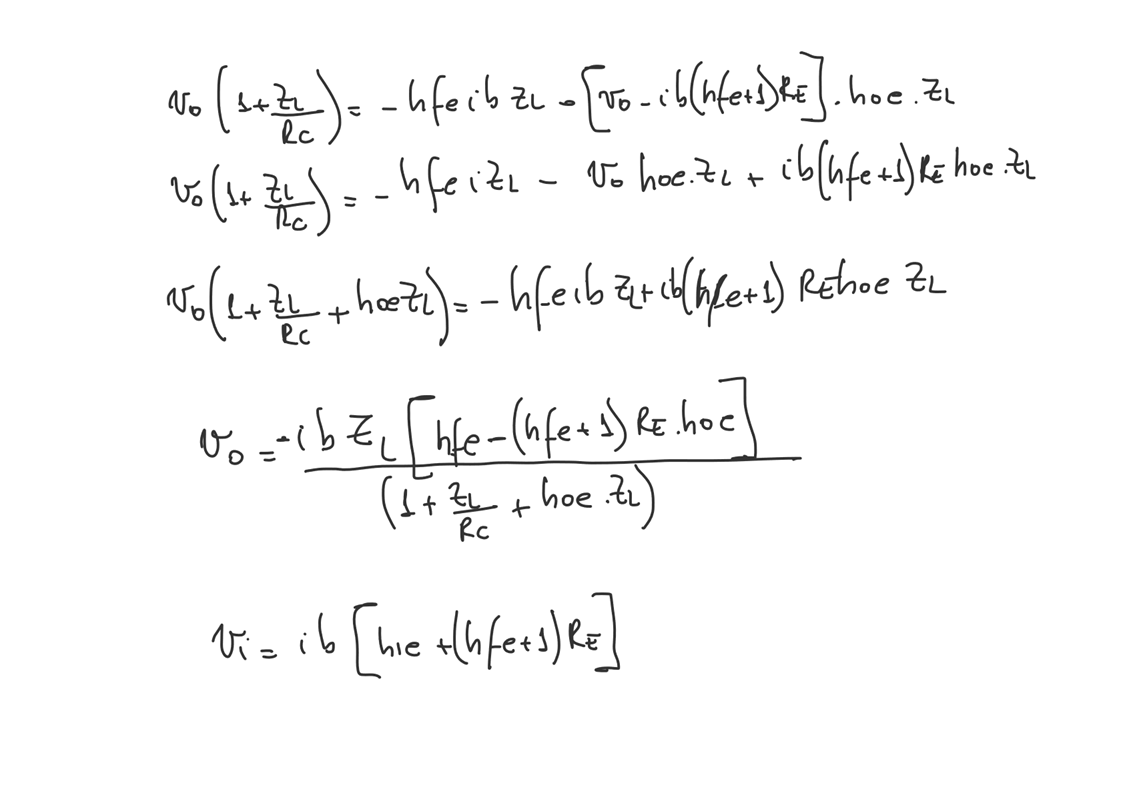 v₀(1+Z_L/R_C) = -hfe ib Z_L - [v₀ - ib(hfe+1)R_E].hoe.Z_L
v₀(1+Z_L/R_C) = -hfe i Z_L - v₀ hoe.Z_L + ib(hfe+1)R_E hoe.Z_L
v₀(1+Z_L/R_C + hoe Z_L) = -hfe ib Z_L + ib(hfe+1) R_E hoe Z_L
v₀ = -ib Z_L [hfe-(hfe+1) R_E.hoe] / (1+Z_L/R_C + hoe.Z_L)
vi = ib [hie +(hfe+1)R_E]